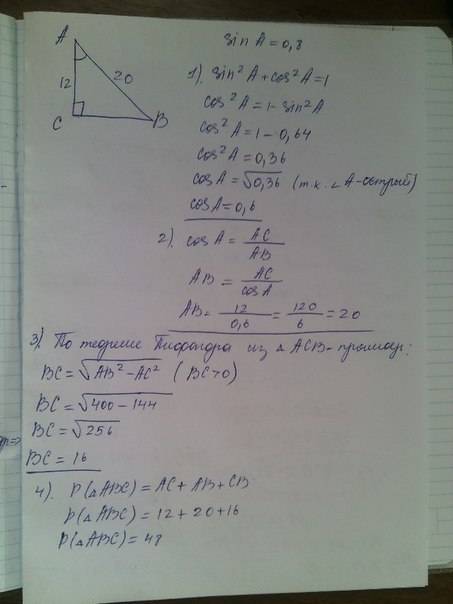 A
12
20
C
B
sin A = 0,8
1). sin² A + cos² A = 1
cos² A = 1 - sin² A
cos² A = 1 - 0,64
cos² A = 0,36
cos A = √0,36 (т.к. ∠A - острый)
cos A = 0,6
2). cos A = AC/AB
AB = AC/cos A
AB = 12/0,6 = 120/6 = 20
3). По теореме Пифагора из △ACB - прямоуг:
BC = √AB² - AC² (BC>0)
BC = √400 - 144
BC = √256
BC = 16
4). P(△ABC) = AC + AB + CB
P(△ABC) = 12 + 20 + 16
P(△ABC) = 48